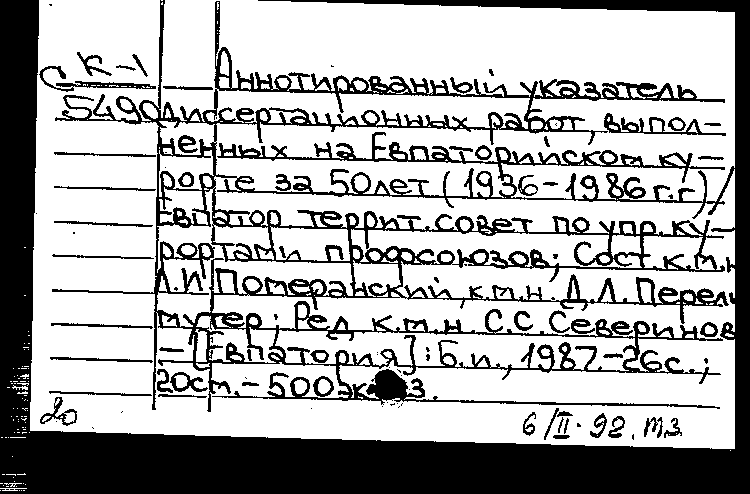 К-1
С 5490
Аннотированный указатель
диссертационных работ, выпол-
ненных на Евпаторийском ку-
рорте за 50лет (1936-1986г.г)/
Евпатор. террит. совет по упр. ку-
рортами профсоюзов; Сост. к.м.н
Л.И. Померанский, к.м.н. Д.Л. Перель
мутер; Ред. к.м.н. С.С. Северинов
- [Евпатория]: Б.и., 1987.-26с.;
20см.- 500экз.
20
6/II-92. т.з.